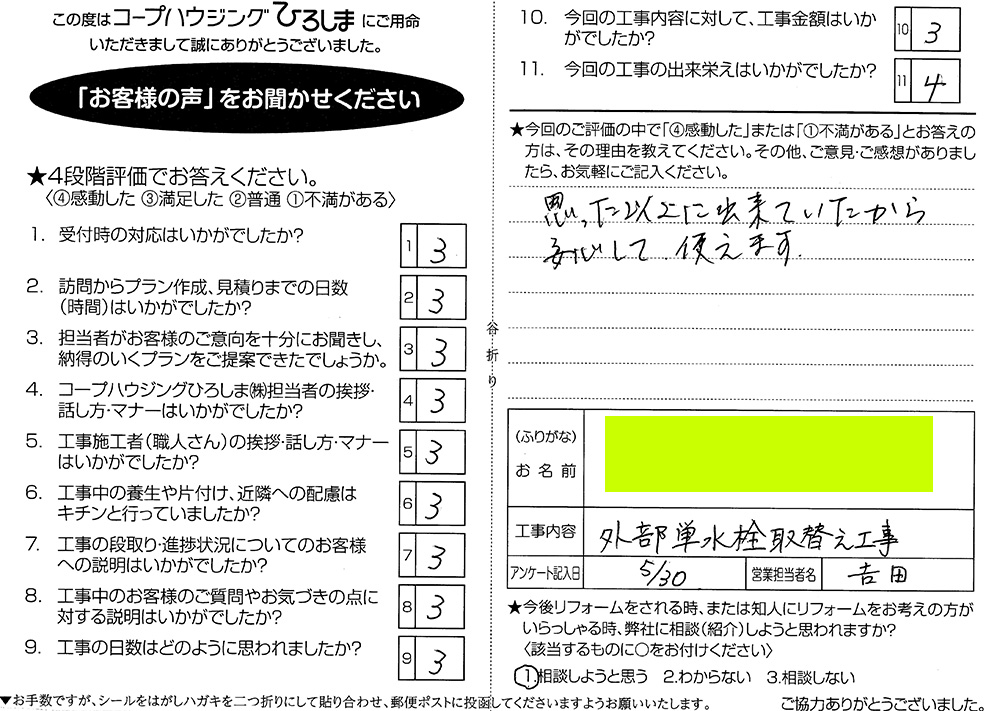 この度はコープハウジングひろしまにご用命
いただきまして誠にありがとうございました。
「お客様の声」をお聞かせください
★4段階評価でお答えください。
〈④感動した ③満足した ②普通 ①不満がある〉
1. 受付時の対応はいかがでしたか?
1 3
2. 訪問からプラン作成、見積りまでの日数
(時間)はいかがでしたか?
2 3
3. 担当者がお客様のご意向を十分にお聞きし、
納得のいくプランをご提案できたでしょうか。
3 3
4. コープハウジングひろしま㈱担当者の挨拶・
話し方・マナーはいかがでしたか?
4 3
5. 工事施工者(職人さん)の挨拶・話し方・マナー
はいかがでしたか?
5 3
6. 工事中の養生や片付け、近隣への配慮は
キチンと行っていましたか?
6 3
7. 工事の段取り・進捗状況についてのお客様
への説明はいかがでしたか?
7 3
8. 工事中のお客様のご質問やお気づきの点に
対する説明はいかがでしたか?
8 3
9. 工事の日数はどのように思われましたか?
9 3
▼お手数ですが、シールをはがしハガキを二つ折りにして貼り合わせ、郵便ポストに投函してくださいますようお願いいたします。
谷折り
10. 今回の工事内容に対して、工事金額はいか
がでしたか?
10 3
11. 今回の工事の出来栄えはいかがでしたか?
11 4
★今回のご評価の中で「④感動した」または「①不満がある」とお答えの
方は、その理由を教えてください。その他、ご意見・ご感想がありまし
たら、お気軽にご記入ください。
思った以上に出来ていたから
安心して使えます.
(ふりがな)
お名前
工事内容 外部単水栓取替え工事
アンケート記入日 5/30 営業担当者名 吉田
★今後リフォームをされる時、または知人にリフォームをお考えの方が
いらっしゃる時、弊社に相談(紹介)しようと思われますか?
〈該当するものに○をお付けください〉
1.相談しようと思う 2.わからない 3.相談しない
ご協力ありがとうございました。